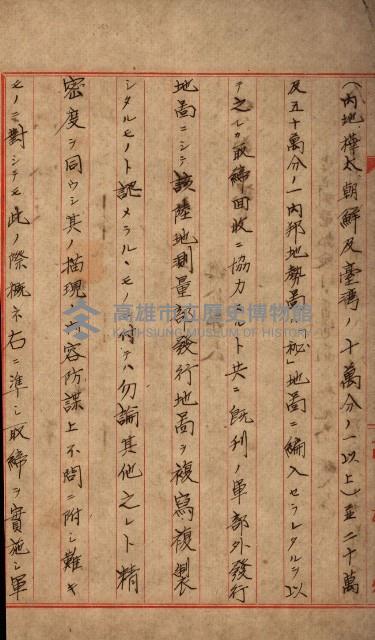 (内地、樺太、朝鮮及臺灣、十萬分ノ一以上)至二十萬
及五十萬分ノ一内邦地勢圖ハ「秘」地圖ニ編入セラレタルヲ以
テ之レカ取締回收ニ協力スルト共ニ既刊ノ軍部外發行
地圖ニシテ該陸地測量部發行地圖ヲ複寫複製
シタルモノト認メラルヽモノニ付テハ勿論其他之レト精
密度ヲ同ウシ其ノ描現内容防諜上不問ニ附シ難キ
モノニ對シテモ此ノ際概ネ右ニ準シ取締ヲ實施シ軍
高雄市立歷史博物館
KAOHSIUNG MUSEUM OF HISTORY